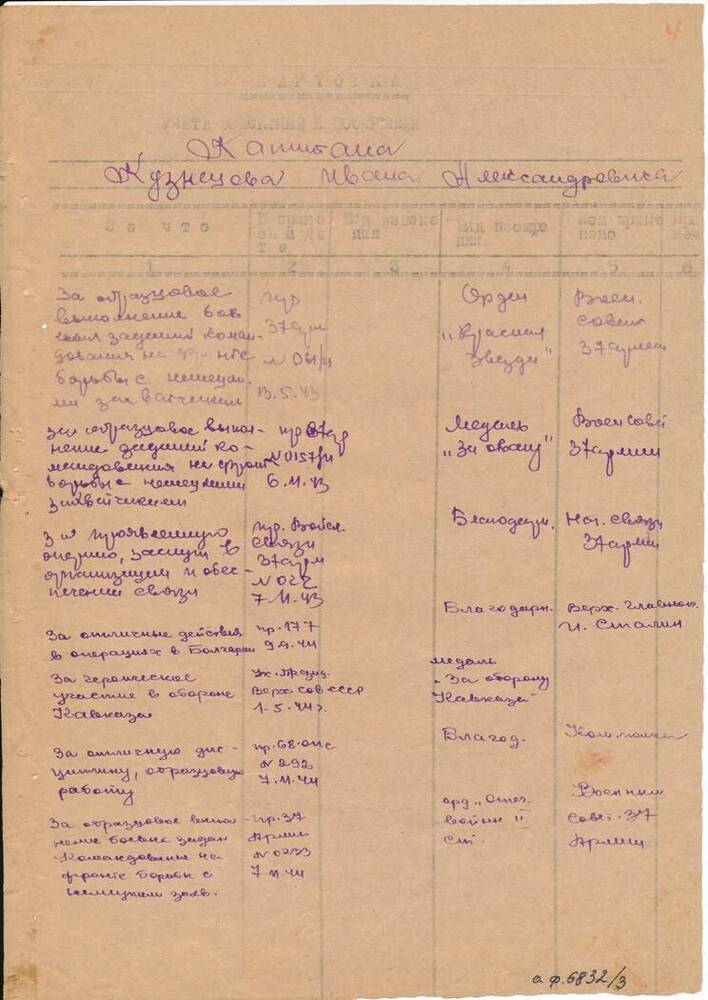 4
КАРТОЧКА
УЧЕТА ВЗЫСКАНИЙ И ПООЩРЕНИЙ
Капитана
Кузнецова Ивана Александровича
За что
вид взыска
ния
вид поощре
ния
кем приме
нено
1 2 3 4 5 6
За образцовое
выполнение бое
вых заданий коман-
дования на фронте
борьбы с немецки-
ми захватчиками
пр
37 арм
N 061/н
13.5.43
Орден
"Красная
Звезда"
Воен.
совет
37 армии
За образцовое выпол-
нение заданий ко-
мандования на фронте
борьбы с немецкими
захватчиками
пр 37 ар
N 0157/н
6.11.43
Медаль
"За отвагу"
Воен совет
37 армии
За проявленную
энергию, заслуги в
организации и обес-
печении связи
пр. Войск.
связи
37 арм
N 022
7.11.43
Благодарн.
Нач. связи
37 арм
За отличные действия
в операциях в Болгарии
пр. 177
9.9.44
Благодарн.
Верх. главноком.
И. Сталин
За героическое
участие в обороне
Кавказа
Ук. Презид.
Верх. сов СССР
1-5.44 г.
медаль
"За оборону
Кавказа"
За отличную дис-
циплину, образцовую
работу
пр. 68 опс
N 292
7.11.44
Благод.
Ком. полка
За образцовое выпол-
нение боевых задан
Командования на
фронте борьбы с
немецким захв.
пр. 37
Армии
N 0233
7.11.44
орд "Отеч.
войны II
ст.
Военный
Совет. 37
Армии
а ф. 6832/3